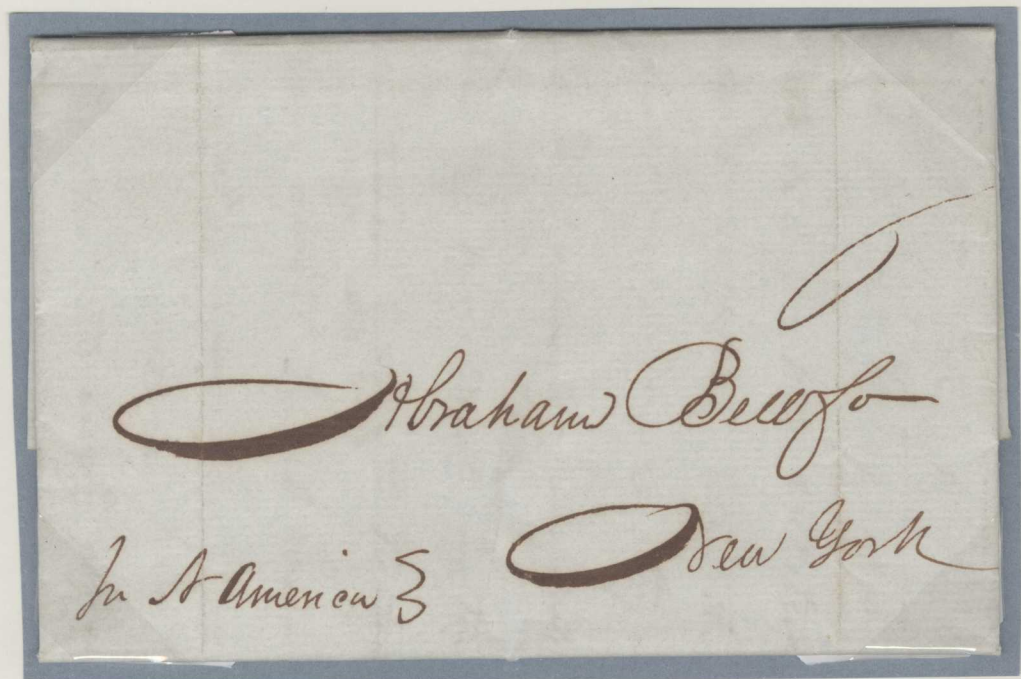 Abraham Bell & Co
New York
In N America